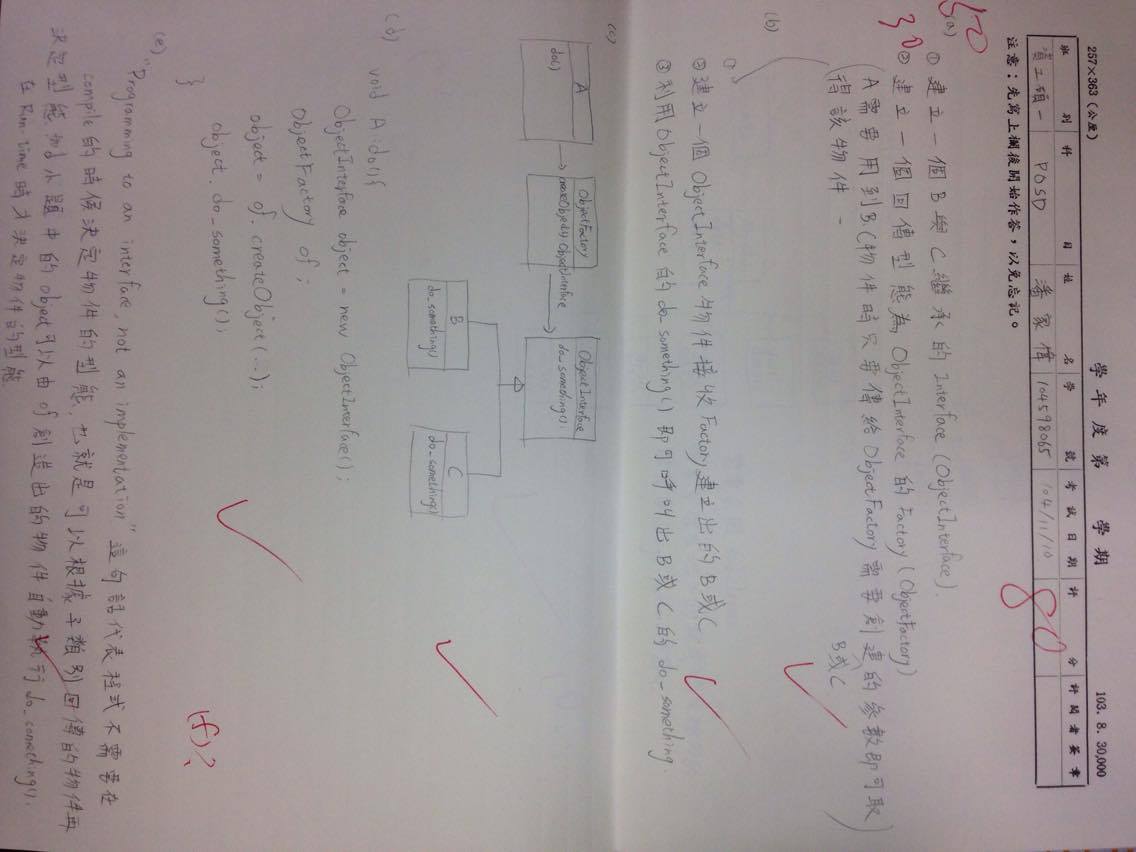 257×363(公厘)
學年度第 學期
103. 8. 30,000
班別 科目 姓名 學號 考試日期 評分 評閱者簽章
資工碩一 POSD 潘家偉 104598065 104/11/10 80
注意：先寫上欄後開始作答，以免忘記。
50
(a)
① 建立一個B與C繼承的Interface (ObjectInterface).
30
② 建立一個回傳型態為ObjectInterface的Factory(ObjectFactory)
(A需要用到B.C物件時只要傳給ObjectFactory需要創建的參數即可取
得該物件)
B或C
(b)
①
②建立一個ObjectInterface物件接收Factory建立出的B或C
③利用ObjectInterface的do_something()即可呼叫出B或C的do_something.
(c)
A ObjectFactory ObjectInterface
do() createObject(): ObjectInterface do_something();
B C
do_something() do_something()
(d)
void A::do(){
ObjectInterface object = new ObjectInterface();
ObjectFactory of;
object = of.createObject(...);
object.do_something();
}
(f)?
(e)
"Programming to an interface, not an implementation" 這句話代表程式不需要在
compile的時候決定物件的型態,也就是可以根據子類別回傳的物件再
決定型態 如d小題中的object可以由of創造出的物件自動執行do_something().
在Run-time時才決定物件的型態